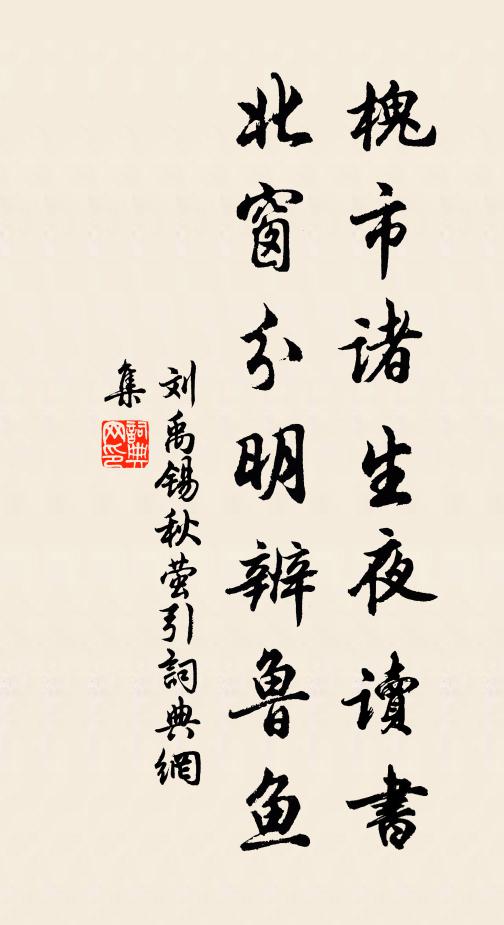 槐市诸生夜讀書
北窗分明辨鲁鱼
刘禹锡秋萤引詞典網
集
詞典網印